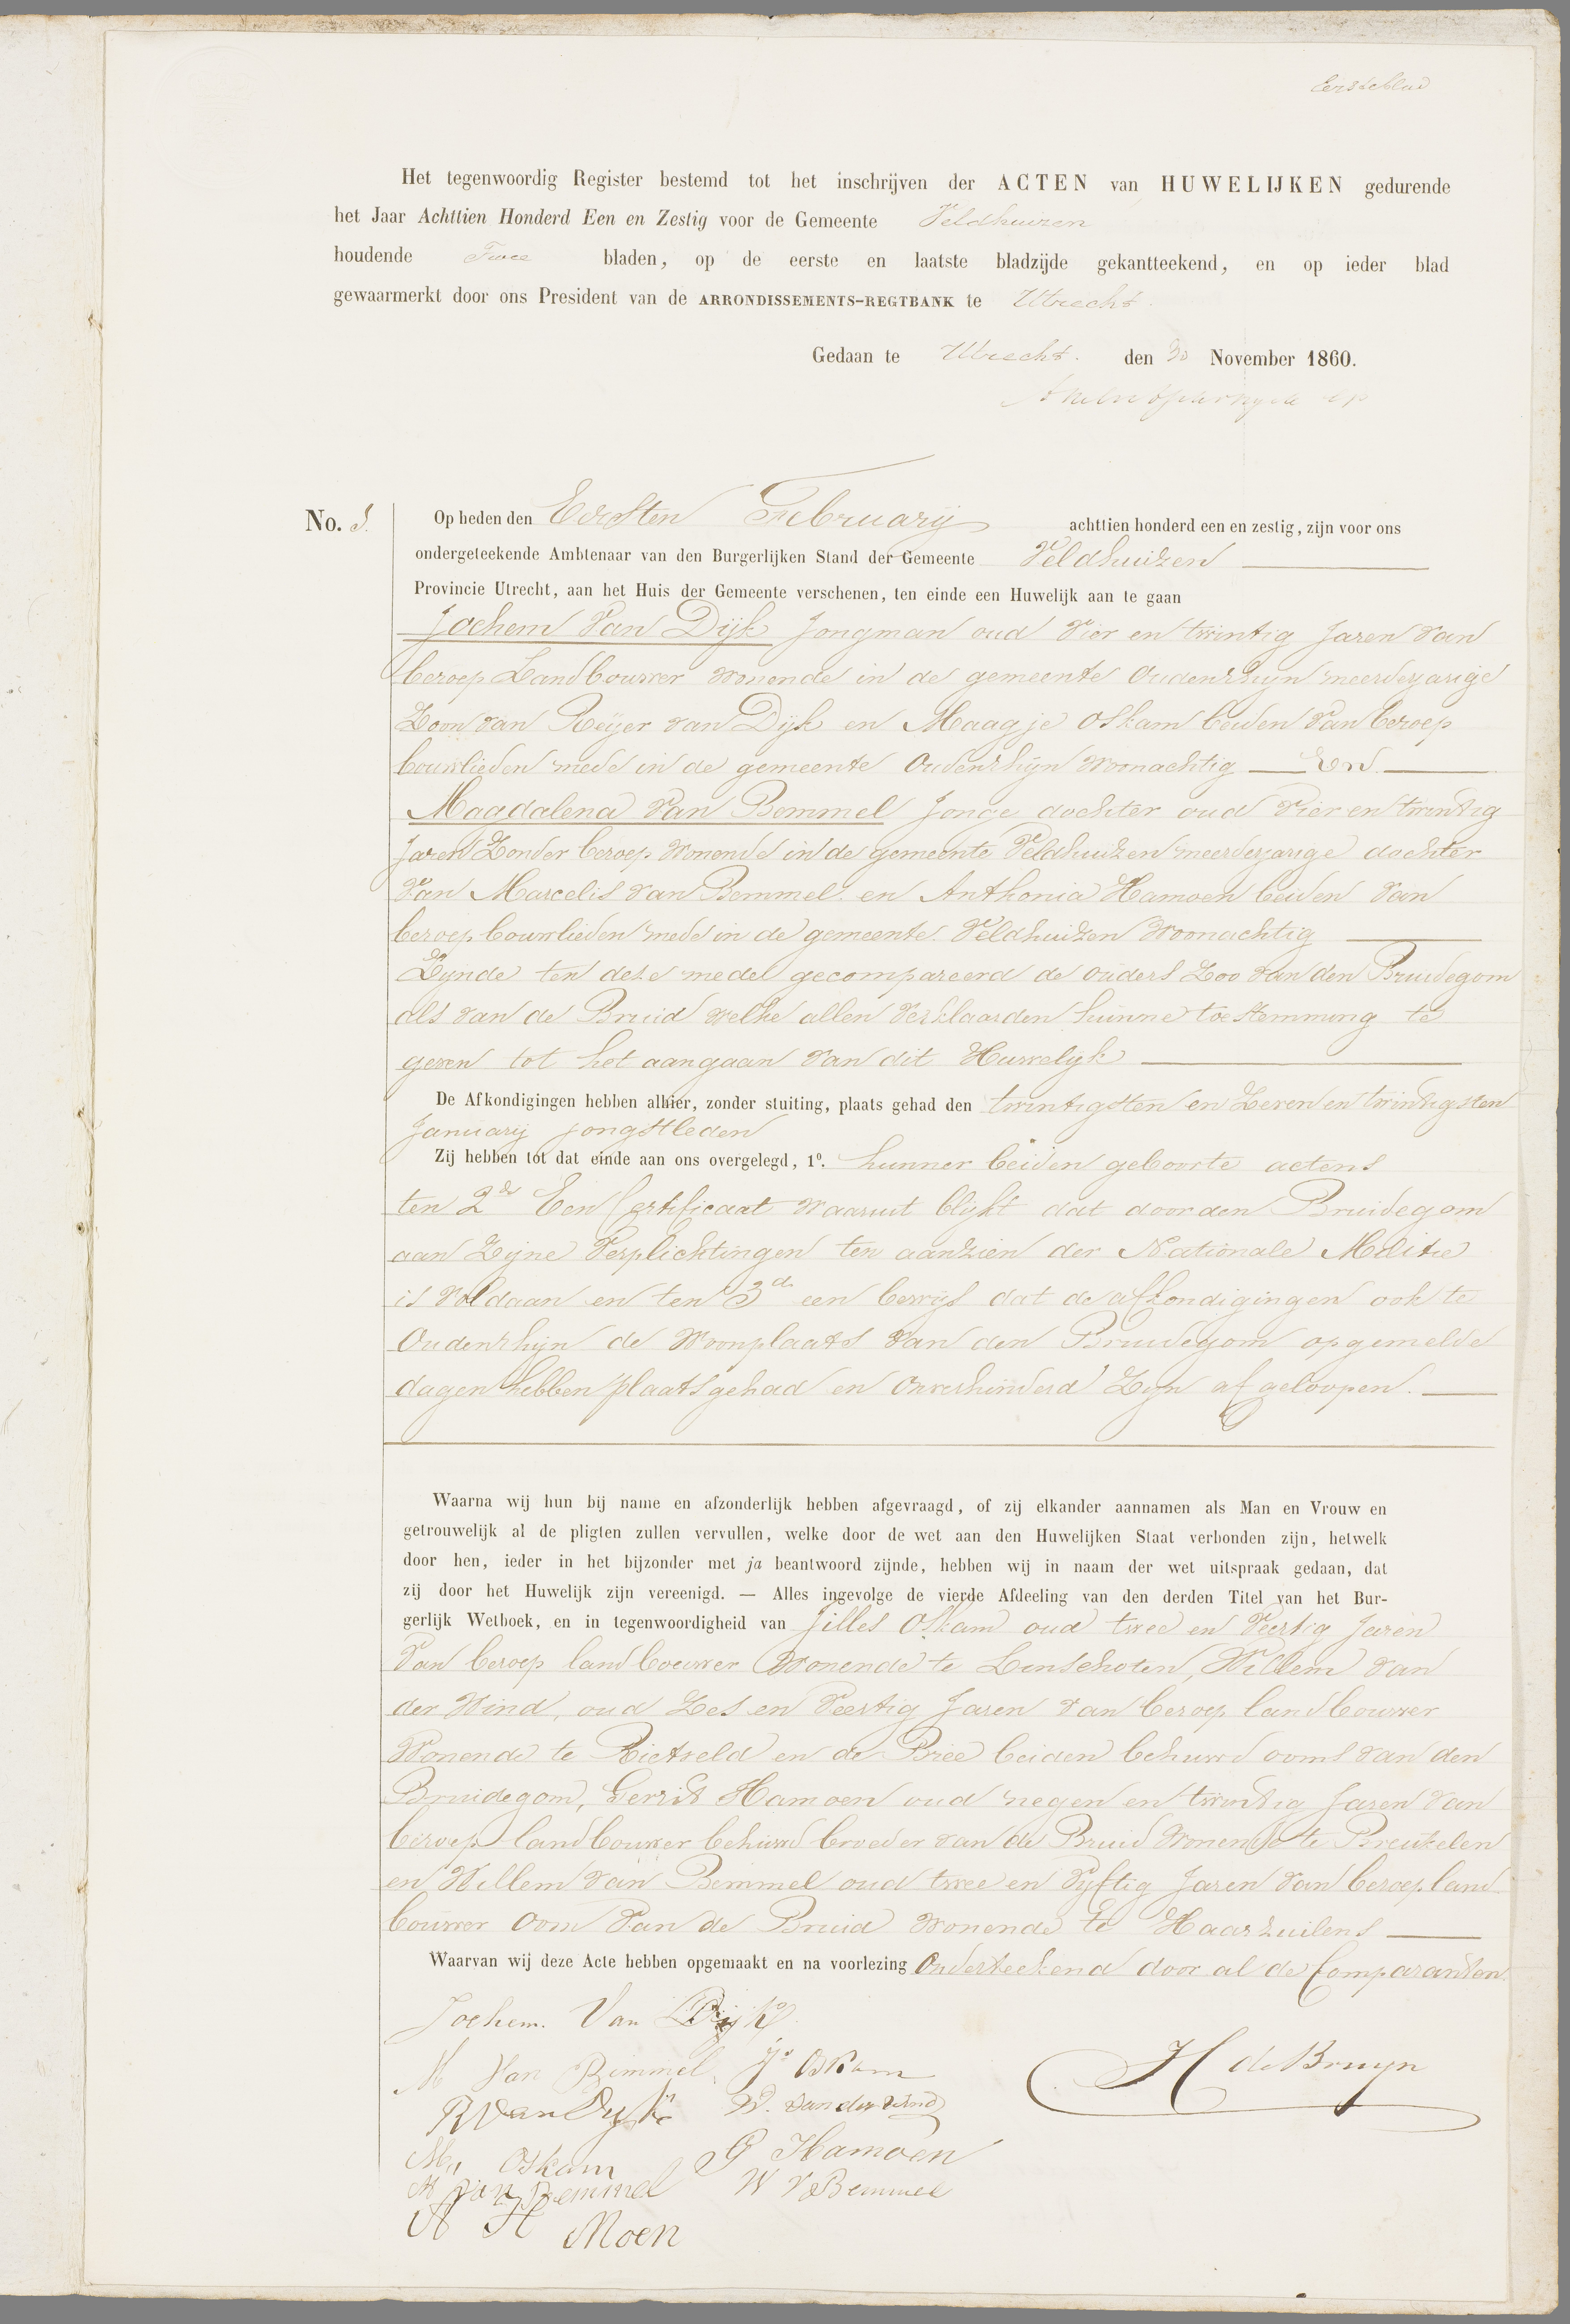 Eersteblad
Het tegenwoordig Register bestemd tot het inschrijven der ACTEN van HUWELIJKEN gedurende
het Jaar Achttien Honderd Een en Zestig voor de Gemeente Veldhuizen
houdende Twee bladen, op de eerste en laatste bladzijde gekantteekend, en op ieder blad
gewaarmerkt door ons President van de ARRONDISSEMENTS-REGTBANK te Utrecht.
Gedaan te Utrecht. den 30 November 1860.
No. 1.
Op heden den Eersten February achttien honderd een en zestig, zijn voor ons
ondergeteekende Ambtenaar van den Burgerlijken Stand der Gemeente Veldhuizen
Provincie Utrecht, aan het Huis der Gemeente verschenen, ten einde een Huwelijk aan te gaan
Jochem Van Dijk Jongman oud Vier en twintig Jaren van
beroep Landbouwer wonende in de gemeente Oudenrhijn meerderjarige
Zoon van Reijer van Dijk en Maagje Oskam beiden van beroep
bouwlieden mede in de gemeente Oudenrhijn Woonachtig — En —
Magdalena Van Bemmel Jonge dochter oud Vier en twintig
Jaren Zonder beroep Wonende in de gemeente Veldhuizen meerderjarige dochter
Van Marcelis van Bemmel en Anthonia Hamoen beiden van
beroep bouwlieden mede in de gemeente Veldhuizen Woonachtig —
Zijnde ten deze mede gecompareerd de ouders Zoo van den Bruidegom
als van de Bruid welke allen Verklaarden hunne toestemming te
geven tot het aangaan van dit Huwelijk —
De Afkondigingen hebben alhier, zonder stuiting, plaats gehad den twintigsten en Zeven en twintigsten
January jongstleden
Zij hebben tot dat einde aan ons overgelegd, 1º. hunner beiden geboorte actens
ten 2de Een Certificaat waaruit blijkt dat door den Bruidegom
aan Zijne Verplichtingen ten aanzien der Nationale Militie
is Voldaan en ten 3de een bewijs dat de afkondigingen ook te
Oudenrhijn de Woonplaats van den Bruidegom op gemelde
dagen hebben plaats gehad en onverhinderd Zijn afgeloopen. —
Waarna wij hun bij name en afzonderlijk hebben afgevraagd, of zij elkander aannamen als Man en Vrouw en
getrouwelijk al de pligten zullen vervullen, welke door de wet aan den Huwelijken Staat verbonden zijn, hetwelk
door hen, ieder in het bijzonder met ja beantwoord zijnde, hebben wij in naam der wet uitspraak gedaan, dat
zij door het Huwelijk zijn vereenigd. — Alles ingevolge de vierde Afdeeling van den derden Titel van het Bur-
gerlijk Wetboek, en in tegenwoordigheid van Jilles Oskam oud twee en Veertig Jaren
Van beroep landbouwer Wonende te Linschoten, Willem van
der Wind, oud Zes en Veertig Jaren van beroep landbouwer
Wonende te Rietveld en de Bree beiden behuwd ooms van den
Bruidegom, Gerrit Hamoen oud negen en twintig Jaren van
beroep landbouwer behuwd broeder van de Bruid Wonende te Breukelen
en Willem van Bemmel oud twee en Vijftig Jaren van beroep land
bouwer Oom Van de Bruid wonende te Haarzuilens —
Waarvan wij deze Acte hebben opgemaakt en na voorlezing Onderteekend door al de Comparanten.
Jochem. Van Dijk
M Van Bemmel Js Oskam
H de Bruyn
R van Dijk W. van der Wind
Ma Oskam G Hamoen
M van Bemmel W V Bemmel
A H Moen